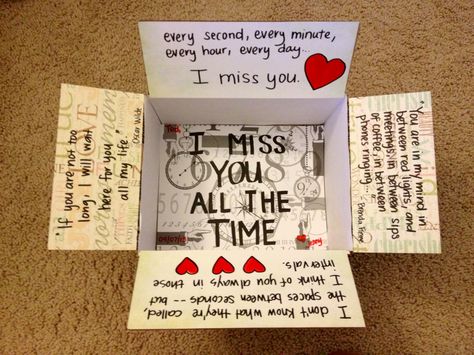 every second, every minute,
every hour, every day...
I miss you.
"If you are not too
long, I will wait
here for you
all my life"
- Oscar Wilde
I MISS
YOU
ALL THE
TIME
"You are in my mind in
between red lights, and
meetings, in between sips
of coffee, in between
phones ringing..."
I don't know what they're called,
the spaces between seconds -- but
I think of you always in those
intervals.